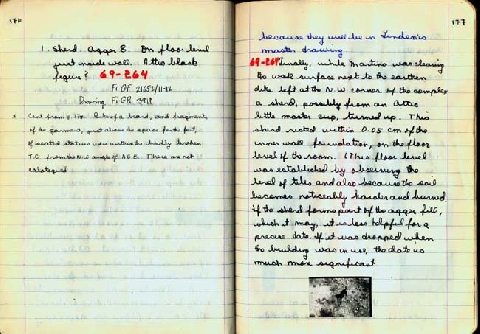 176
1. Sherd. Agger 8. On floor level
just inside wall. Attic black
figure? 69-264
Drawing
of the garment, just above the
T.C. from the NW angle of AGE. These are not
catalogued.
177
because they will be in Linden's
master drawing.
69-264 Finally, while Martino was cleaning
the wall surface next to the earthen
dike left at the N.W. corner of the complex
a sherd, possibly from an Attic
little master cup, turned up. This
sherd rested within 0.05 cm of the
inner wall foundation, on the floor
level of the room. (This floor level
was established by observing the
level of tiles and also because the soil
becomes noticeably harder and burned
if the sherd forms part of the agger fill,
which it may, it is less helpful for a
precise date. If it was dropped when
the building was in use, the date is
much more significant.